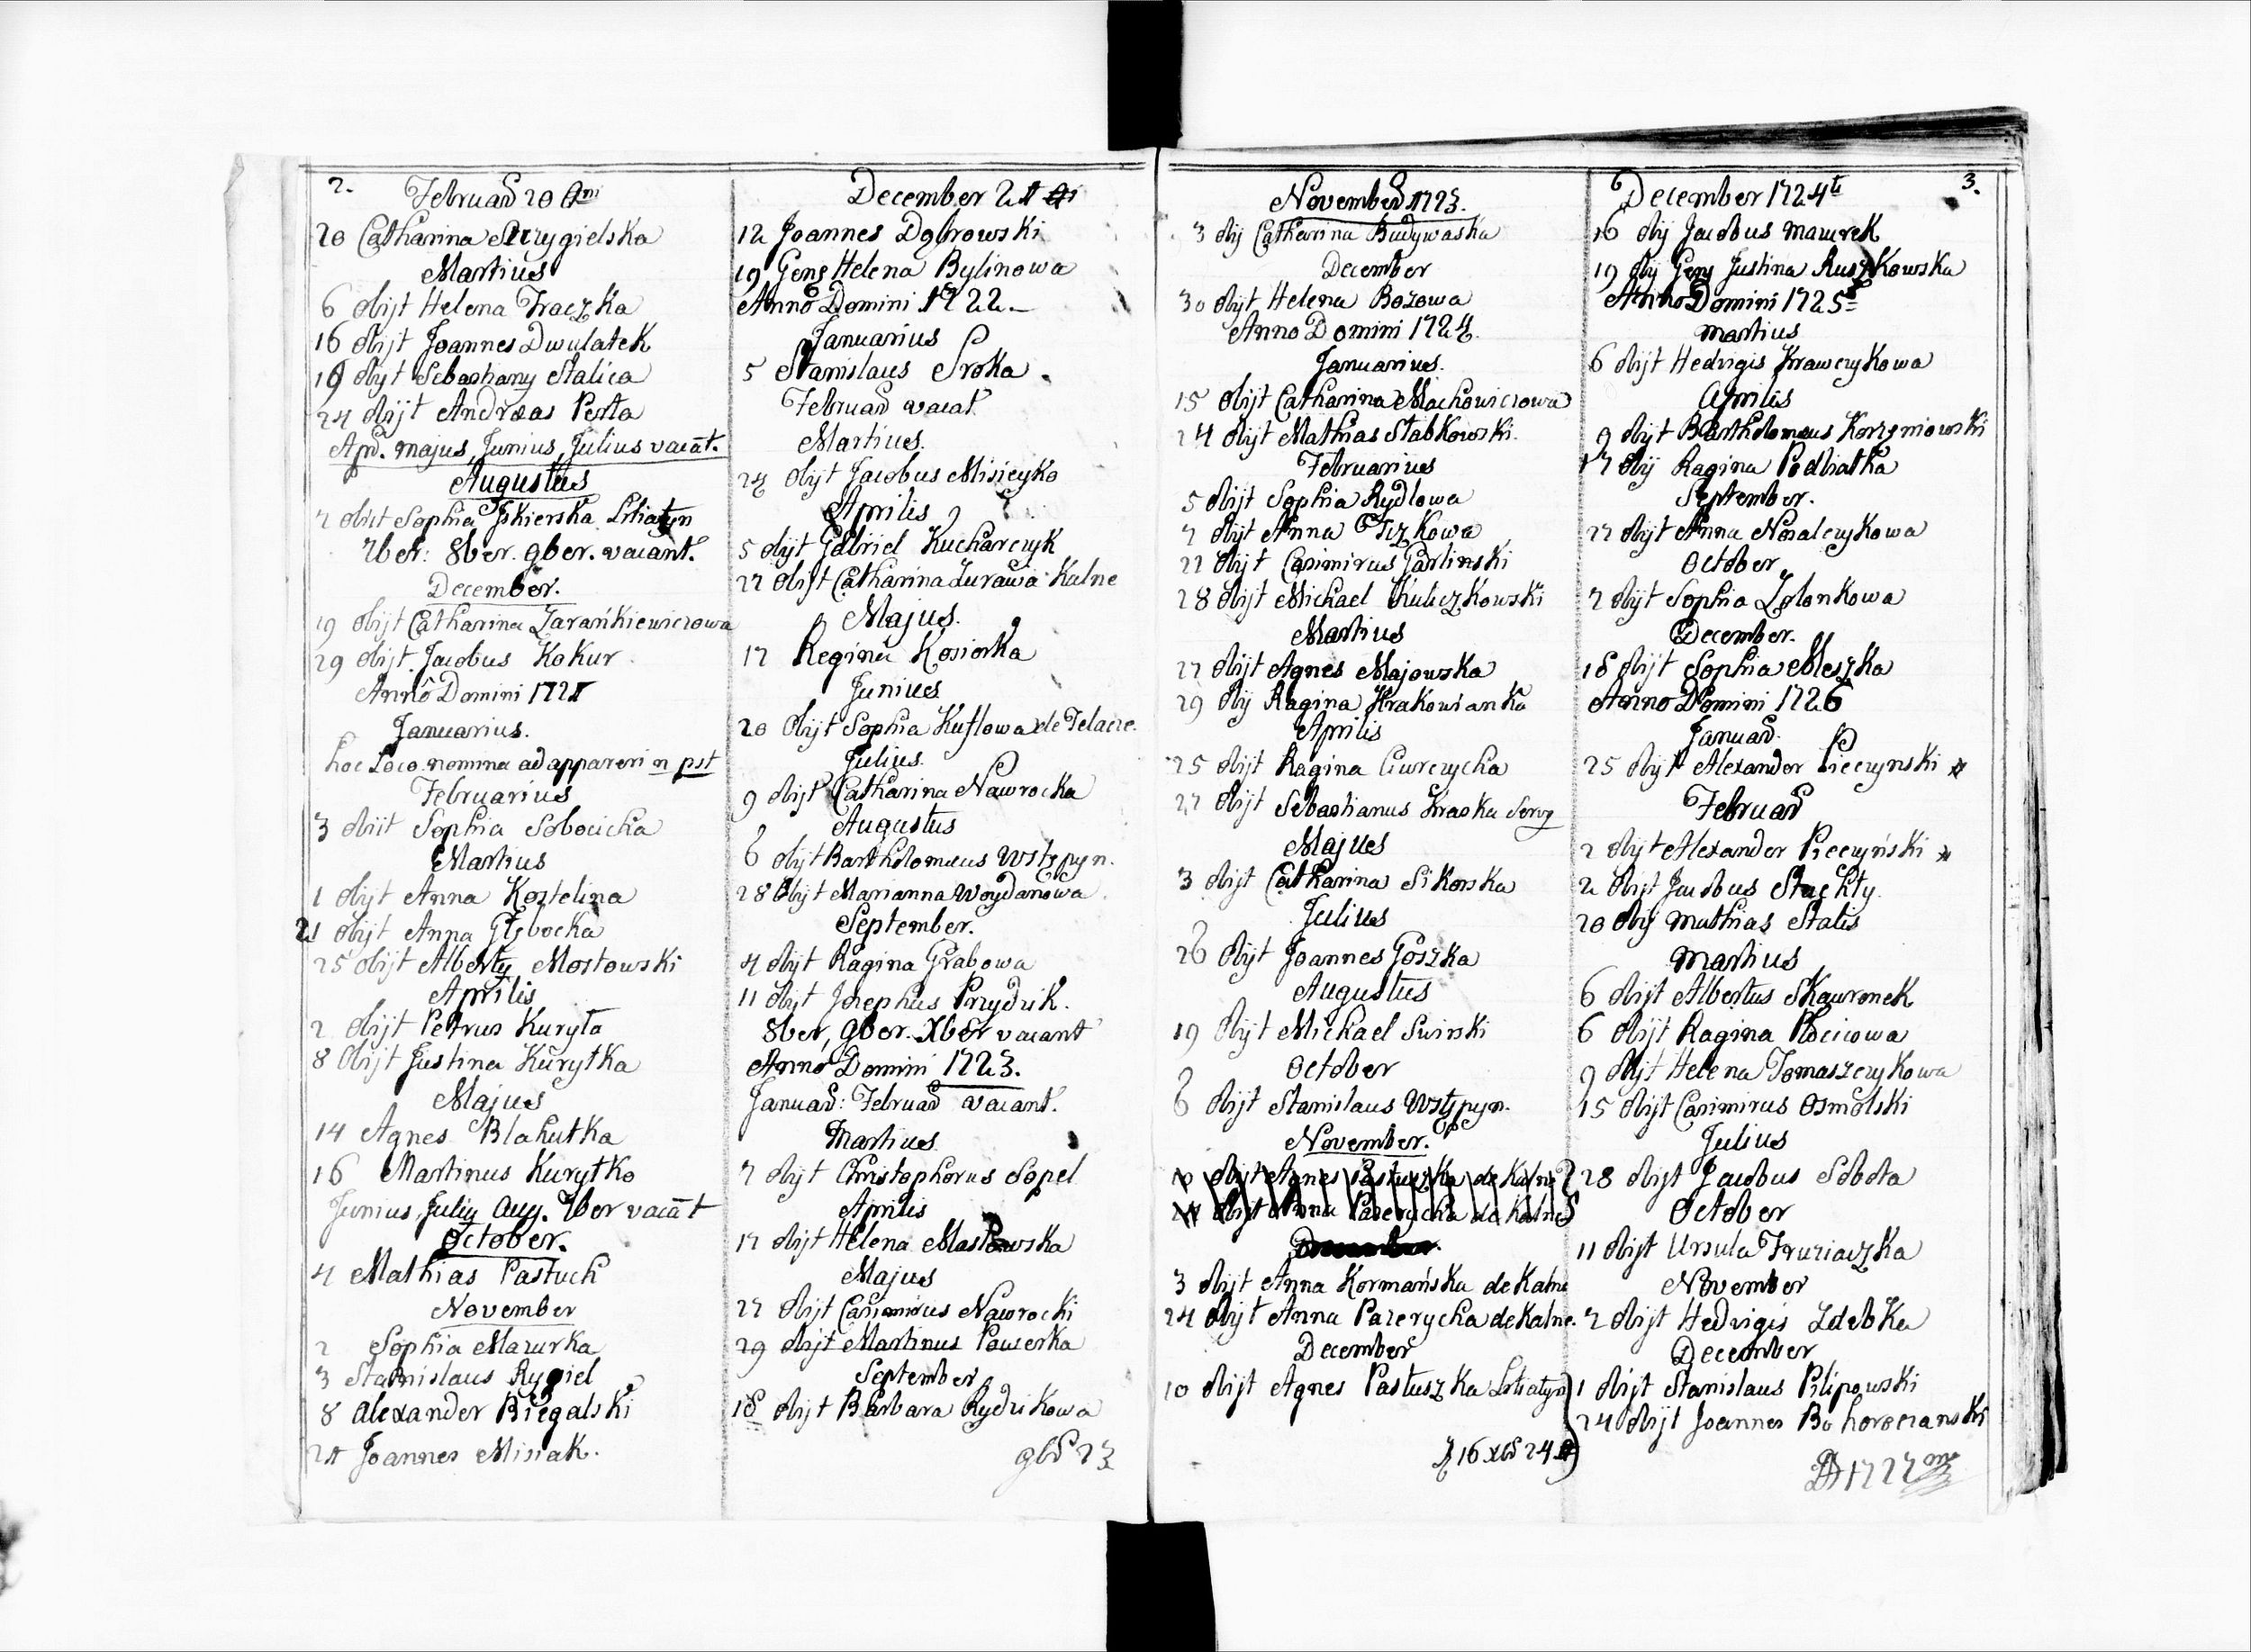 2.
Februar 20 Ani
20 Catharina Strzygielska
Martius
6 obijt Helena Fraczka
16 obijt Joannes Dwulatek
19 obijt Sebastiany Stalica
24 obijt Andræas Perta
Apr. Majus, Junius, Julius vacāt.
Augustus
7 obiit Sophia Iskierska Litiatyn
7ber: 8ber. 9ber. vacant.
December.
19 obijt Catharina Zarańkiewiczowa
29 obijt Jacobus Kokur
Anno Domini 1721
Januarius.
hoc Loco nomina ad appareri n pst
Februarius
3 obiit Sophia Sobocicha
Martius
1 obijt Anna Koztelina
21 obijt Anna Głębocka
25 obijt Alberty Mostowski
Aprilis
2 obijt Petrus Kuryta
8 obijt Justina Kurytka
Majus
14 Agnes Blahutka
16 Martinus Kurytko
Junius, July Aug. 7ber vacāt
October.
4 Mathias Pastuch
November
2 Sophia Mazurka
3 Stanislaus Rygiel
8 Alexander Biegalski
21 Joannes Misiak.
December 21 Ai
12 Joannes Dobrowski
19 Gens Helena Bylinowa
Anno Domini 1722.
Januarius
5 Stanislaus Sroka
Februar vacat
Martius.
24 obijt Jacobus Misieyko
Aprilis
5 obijt Gabriel Kucharczyk
27 obijt Catharina Zurawa Kalne
Majus.
17 Regina Kosiorka
Junius
20 obijt Sophia Kuflowa de Telacze.
Julius.
9 obijt Catharina Nawrocka
Augustus
6 obijt Bartholomæus Wstępyn.
28 obijt Marianna Woydanowa
September.
4 obijt Ragina Grabowa
11 obijt Josephus Przydzik.
8ber, 9ber. Xber vacant
Anno Domini 1723.
Januar: Februar vacant.
Martius
7 obijt Christophorus Sopel
Aprilis
17 obijt Helena Maslowska
Majus
27 obijt Casimirus Nawrocki
29 obijt Martinus Pawerka
September
18 obijt Barbara Rydzikowa
9br 23
November 1723.
3 obij Catharina Budywaska
December
30 obijt Helena Bozowa
Anno Domini 1724.
Januarius.
15 obijt Catharina Machowiczowa
24 obijt Mathias Stabkowski.
Februarius
5 obijt Sophia Rydlowa
7 obijt Anna Tizkowa
21 obijt Casimirus Garlinski
28 obijt Michael Kuliczkowski
Martius
27 obijt Agnes Majowska
29 obij Ragina Krakowianka
Aprilis
25 obijt Ragina Ciurczycha
27 obijt Sebastianus Kraska
Majus
3 obijt Catharina Sikorska
Julius
26 obijt Joannes Goszka
Augustus
19 obijt Michael Swirski
October
6 obijt Stanislaus Wstępyn.
November.
obijt Agnes Pastuszka de Kalne
obijt Anna Pazerycha de Kalne
December.
3 obijt Anna Kormańska de Kalne
24 obijt Anna Pazerycha de Kalne.
December
10 obijt Agnes Pastuszka Litiatyn
16 xbr 24
3.
December 1724ti
16 obij Jacobus Mazurek
19 obij Gens Justina Ruszkowska
Anno Domini 1725
Martius
6 obijt Hedvigis Krawczykowa
Aprilis
9 obijt Bartholomæus Korzeniowski
17 obij Ragina Podbiatka
September.
27 obijt Anna Nosalczykowa
October
7 obijt Sophia Zolonkowa
December.
18 obijt Sophia Meszka
Anno Domini 1726
Januar.
25 obijt Alexander Pieczynski
Februar
2 obijt Alexander Pieczyński
2 obijt Jacobus Stachty.
20 obij Mathias Stalis
Martius
6 obijt Albertus Skawronek
6 obijt Ragina Płocicowa
9 obijt Helena Tomaszczykowa
15 obijt Casimirus Osmólski
Julius
28 obijt Jacobus Sobota
October
11 obijt Ursula Fruziaczka
November
7 obijt Hedvigis Zdebka
December
1 obijt Stanislaus Pilipowski
24 obijt Joannes Bohoroczanski
AD 1727mo